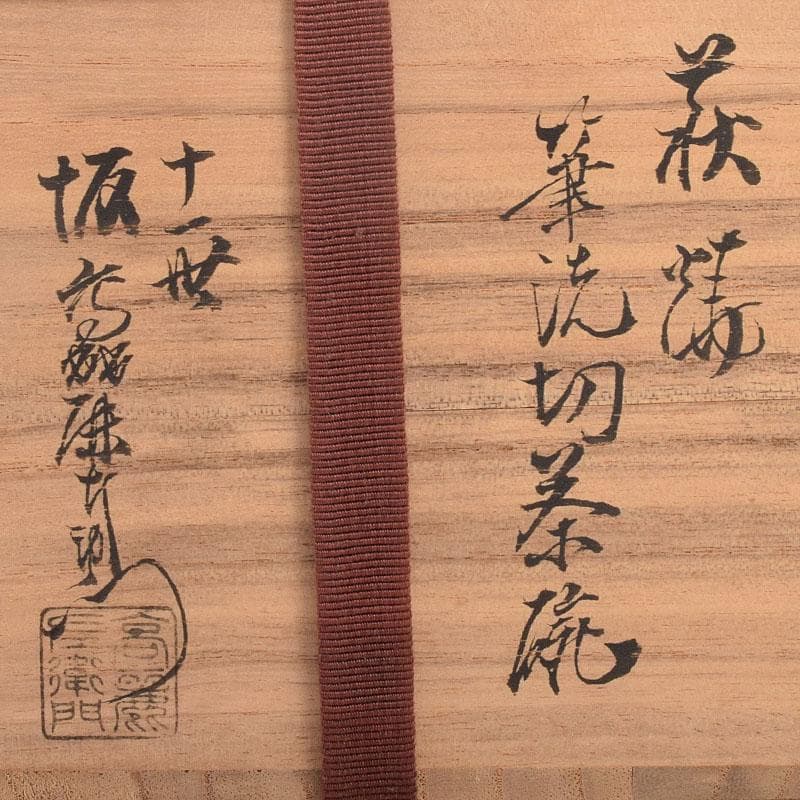 萩焼
筆洗切茶碗
十一世
坂高麗左衛門
高麗左衛門